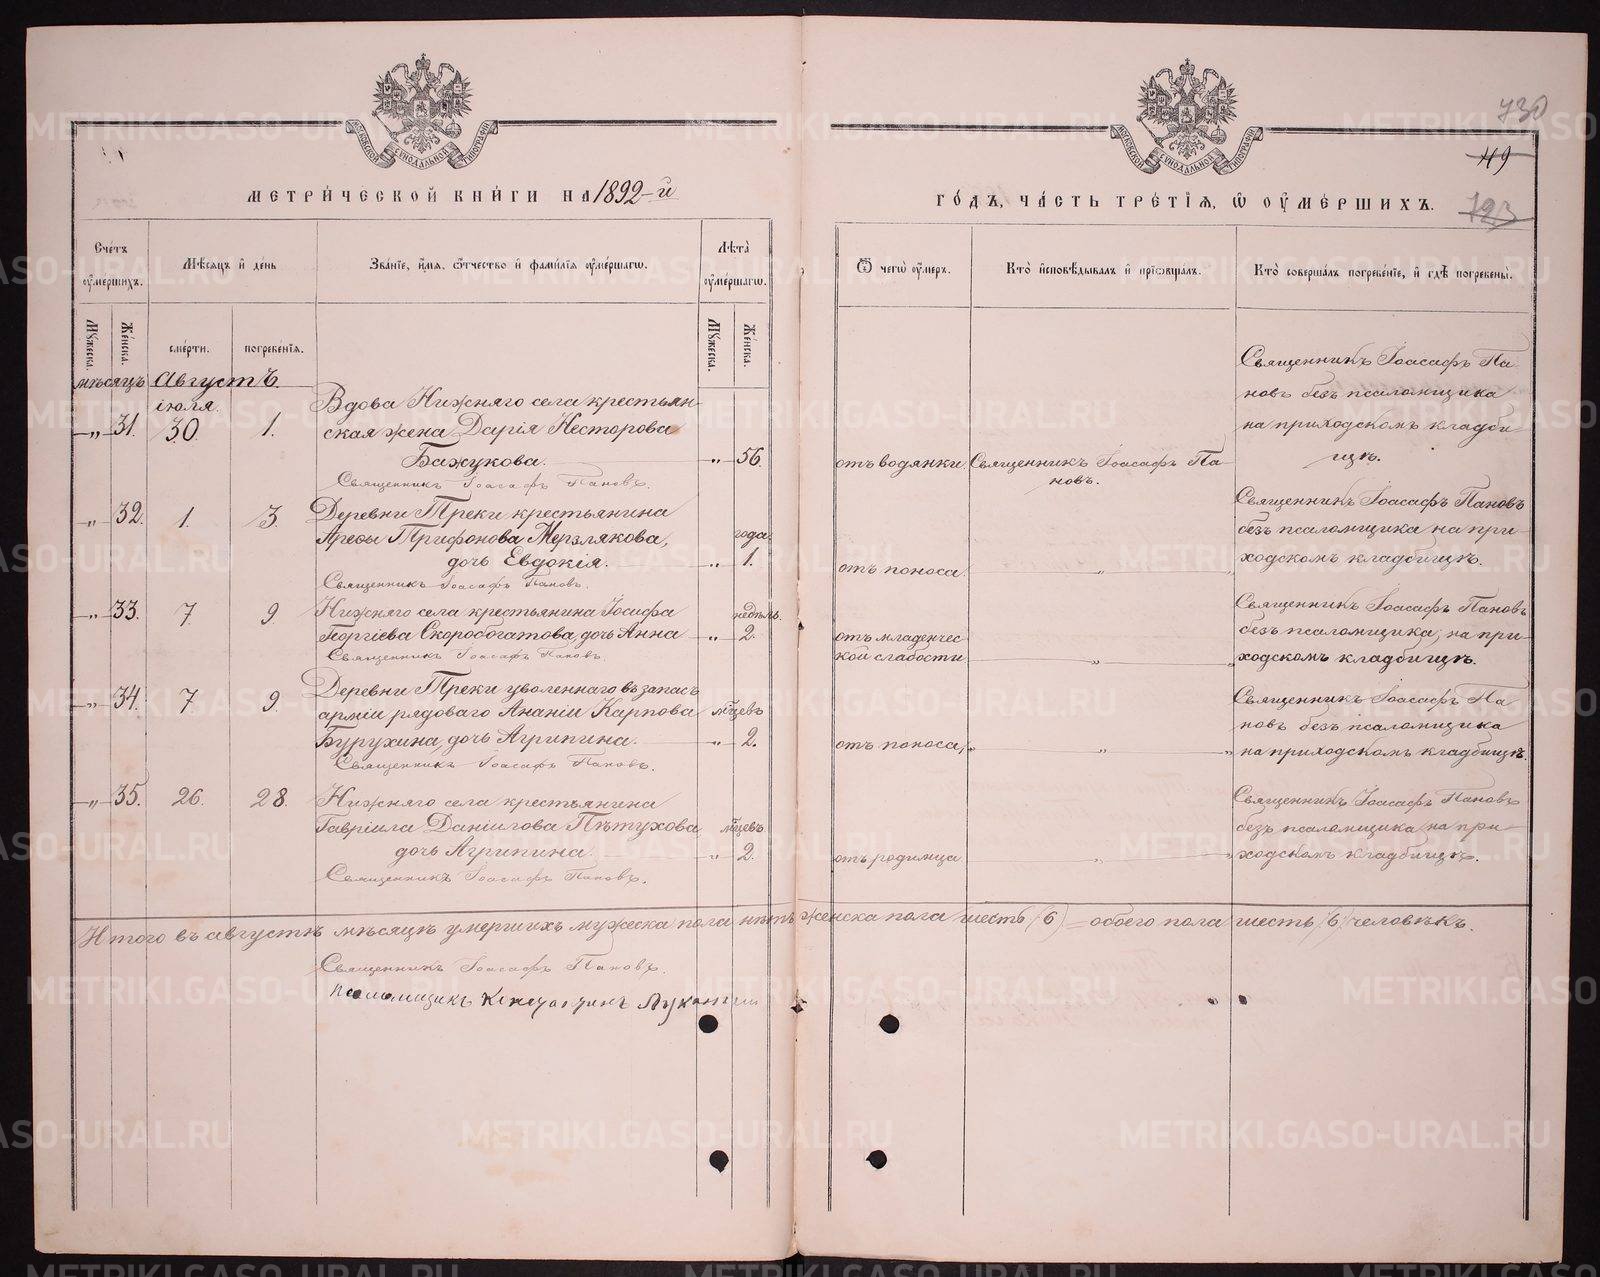 730
49
723
МЕТРИЧЕСКОЙ КНИГИ НА 1892-й
ГОДЪ, ЧАСТЬ ТРЕТІЯ, Ѿ ОУМЕРШИХЪ.
Счетъ оумершихъ.
Мѣсяцъ и день
Званіе, имя, отчество и фамилія оумершагѡ.
Лѣта оумершагѡ.
Ѿ чегѡ оумеръ.
Кто исповѣдывалъ и пріѡбщалъ.
Кто совершалъ погребеніе, и гдѣ погребены.
Мужеска. Женска. смерти. погребенія. Мужеска. Женска.
мѣсяцъ Августъ.
іюля
„ 31. 30. 1.
Вдова Нижняго села крестьян-
ская жена Дарія Несторова
Бажукова. „ 56.
Священникъ Іоасафъ Пановъ.
отъ водянки.
Священникъ Іоасафъ Па-
новъ.
Священникъ Іоасафъ Па-
новъ безъ псаломщика
на приходскомъ кладби-
щѣ.
„ 32. 1. 3.
Деревни Треки крестьянина
Арефы Трифонова Мерзлякова, года
дочь Евдокія. „ 1.
Священникъ Іоасафъ Пановъ.
отъ поноса. „
Священникъ Іоасафъ Пановъ
безъ псаломщика на при-
ходскомъ кладбищѣ.
„ 33. 7. 9
Нижняго села крестьянина Іосифа недѣль
Георгіева Скоробогатова, дочь Анна „ 2.
Священникъ Іоасафъ Пановъ.
отъ младенчес
кой слабости „
Священникъ Іоасафъ Пановъ
безъ псаломщика, на при-
ходскомъ кладбищѣ.
„ 34. 7. 9.
Деревни Треки уволеннаго въ запасъ
арміи рядоваго Ананіи Карпова мѣцевъ
Бурухина, дочь Агрипина. „ 2.
Священникъ Іоасафъ Пановъ.
отъ поноса, „
Священникъ Іоасафъ Па
новъ безъ псаломщика
на приходскомъ кладбищѣ.
„ 35. 26. 28.
Нижняго села крестьянина
Гавріила Даніилова Пѣтухова, мѣцевъ
дочь Агрипина. „ 2.
Священникъ Іоасафъ Пановъ.
отъ родимца „
Священникъ Іоасафъ Пановъ
безъ псаломщика на при-
ходскомъ кладбищѣ.
Итого въ августѣ мѣсяцѣ умершихъ мужеска пола нѣтъ женска пола шесть (6) — обоего пола шесть (6) человѣкъ.
Священникъ Іоасафъ Пановъ.
Псаломщикъ Константинъ Луканинъ
METRIKI.GASO-URAL.RU